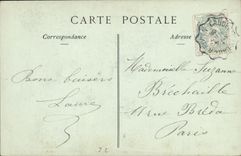 CARTE POSTALE
Correspondance
Adresse
Bons baisers
Laure
Mademoiselle Suzanne
Bréchaille
11 rue Bréda
Paris